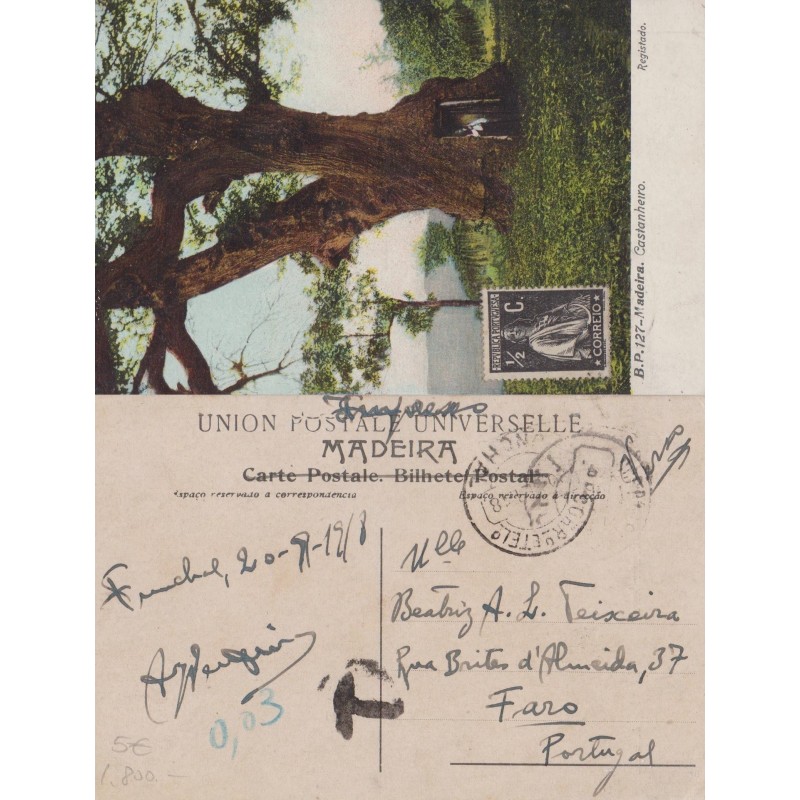 Registado.
B.P. 127-Madeira. Castanheiro.
REPUBLICA PORTUGUESA
½ C.
CORREIO
Impresso
UNION POSTALE UNIVERSELLE
MADEIRA
Carte Postale. Bilhete Postal
Espaço reservado á correspondencia
Espaço reservado á direcção
FUNCHAL
Funchal, 20-9-1918
Mlle
Beatriz A. L. Teixeira
Rua Brites d'Almeida, 37
Faro
Portugal
T
0,03
5€
1.800.-